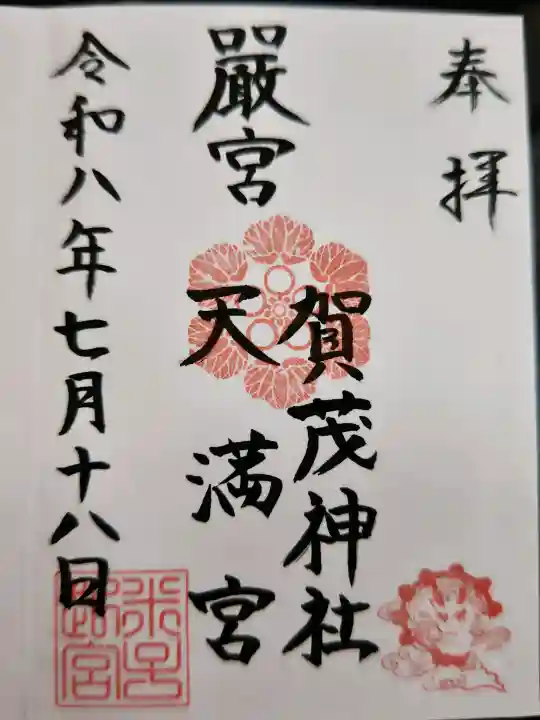 奉拝
嚴宮
賀茂神社
天満宮
令和八年七月十八日